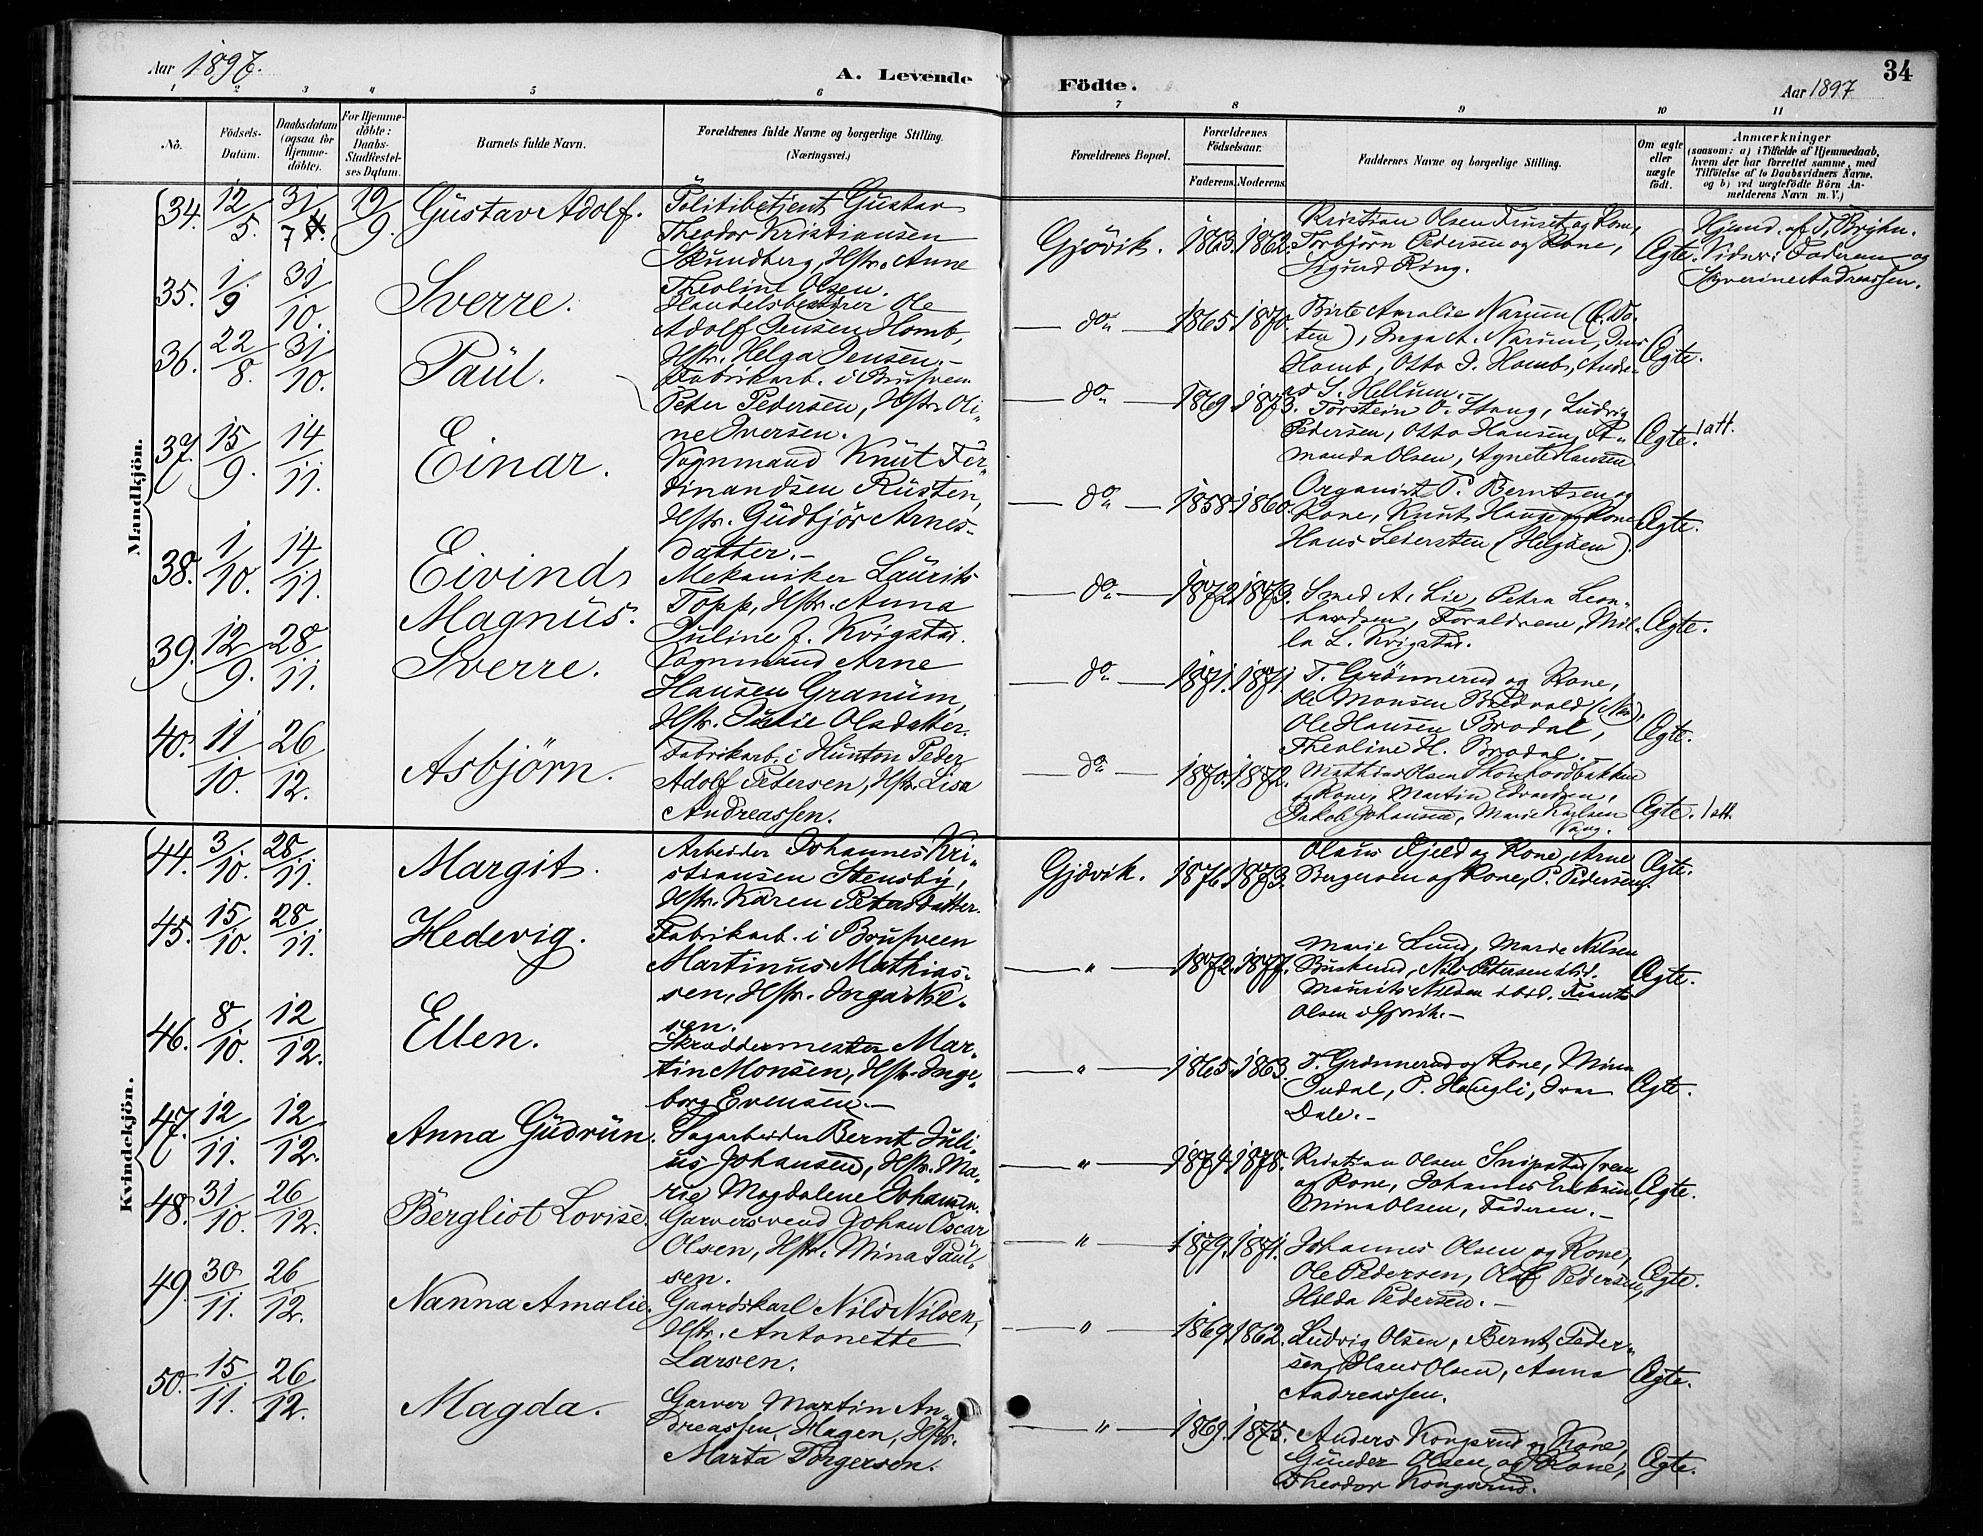 Aar 1897.
A. Levende
Födte.
34
Aar 1897
1 2 3 4 5 6 7 8 9 10 11
No.
Födsels-
Datum.
Daabsdatum
(ogsaa for
Hjemme-
döbte).
For Hjemme-
döbte:
Daabs-
Stadfæstel-
ses Datum.
Barnets fulde Navn.
Forældrenes fulde Navne og borgerlige Stilling.
(Næringsvei.)
Forældrenes Bopæl.
Forældrenes
Födselsaar.
Faderens.
Moderens.
Faddernes Navne og borgerlige Stilling.
Om ægte
eller
uægte
født.
Anmærkninger
(saasom: a) i Tilfælde af Hjemmedaab,
hvem der har forrettet samme, med
Tilföielse af to Daabsvidners Navne,
og b) ved uægtefödte Börn An-
melderens Navn m. V.)
Mandkjön.
34. 12/5. 31/7 19/9. Gustav Adolf.
Politibetjent Gustav
Theodor Kristiansen
Skundberg, Hstr. Anne
Theoline Olsen.
Gjövik. 1863. 1862.
Kristian Olsen Furset og Kone,
Torbjörn Pedersen og Kone,
Sigurd Ring.
Ægte.
Hjemd. af T. Brijhn.
Vidner: Faderen og
Syverine Andreassen.
35. 1/9 31/10. Sverre.
Handelsbestyrer Ole
Adolf Jensen Homb,
Hstr. Helga Jensen.-
do 1865. 1870.
Birte Amalie Narum
Inga A. Narum, Jens
Homb, Otto J. Homb, Andre-
as S. Hellum.-
Ægte.
36. 22/8. 31/10. Paul.
Fabrikarb. i Brusveen
Peter Pedersen, Hstr. Oli-
ne Iversen.
do 1869. 1873.
Torstein O. Haug, Ludvig
Pedersen, Otto Hansen, A-
manda Olsen, Agnete Hansen
Ægte. 1 att.
37. 15/9. 14/11. Einar.
Vognmand Knut Fer-
dinandsen Rusten,
Hstr. Gudbjör Arnes-
datter.-
do 1858. 1860.
Organist P. Berntsen og
Kone, Knut Hauge og Kone
Hans (Helgöen).
Ægte.
38. 1/10. 14/11. Eivind
Magnus.
Mekaniker Laurits
Topp, Hstr. Anna
Juline J. Kvigstad.
do 1872. 1873.
Smed A. Lie, Petra Leon-
hardsen, Forældrene, Mil-
la L. Kvigstad.
Ægte.
39. 12/9. 28/11. Sverre.
Vognmand Arne
Hansen Granum,
Hstr. Julie Olsdatter.
do 1871. 1871
T. Grönnerud og Kone,
Ole Monsen Bredvold
Ole Hansen Brodal,
Theoline H. Brodal.-
Ægte.
40. 11/10. 26/12. Asbjörn.
Fabrikarb. i Hunton Peder
Adolf Petersen, Hstr. Lisa
Andreassen.
do 1870. 1872.
Mathias Olsen Skonhordbakken
og Kone, Martin Edvardsen,
Jakob Johansen, Marie Karlsen
Vang.
Ægte. 1 att.
Kvindekjön.
44. 3/10. 28/11. Margit.
Arbeider Johannes Kri-
stiansen Stensby,
Hstr. Karen Petersdatter.
Gjövik. 1876. 1873.
Olaus Fjeld og Kone, Arne
Bergersen og Kone, P. Pedersen.
Ægte.
45. 15/10. 28/11. Hedevig.
Fabrikarb. i Brusveen
Martinus Mathias-
sen, Hstr. Inga Nil-
sen.
" 1872. 1877.
Marie Lund, Marie Nilsen
Buskerud, Nils Petersen ibid.
Maurits Nilsen ibid. Frants
Olsen i Gjövik.-
Ægte.
46. 8/10. 12/12. Ellen.
Skræddermester Mar-
tin Monsen, Hstr. Inge-
borg Evensen.-
" 1865. 1863.
T. Grönnerud og Kone, Mina
Indal, P. Haugli, Ivar
Dale.-
Ægte.
47. 12/11. 12/12. Anna Gudrun.
Sagarbeider Bernt Juli-
us Johansen, Hstr. Ma-
rie Magdalene Johansen.
" 1874. 1878.
Kristian Olsen Snipstadsveen
og Kone, Johannes Eriksen,
Mina Olsen, Faderen.-
Ægte.
48. 31/10. 26/12. Bergliot Lovise.
Garversvend Johan Oscar
Olsen, Hstr. Mina Paul-
sen.
" 1879. 1871.
Johannes Olsen og Kone,
Ole Pedersen, Olaf Pedersen,
Hilda Pedersen.-
Ægte.
49. 30/11. 26/12. Nanna Amalie.
Gaardskarl Nils Nilsen,
Hstr. Antonette
Larsen.
" 1869. 1862.
Ludvig Olsen, Bernt Peder-
sen, Hans Olsen, Anna
Andreassen.
Ægte.
50. 15/11. 26/12. Magda.
Garver Martin An-
dreassen Hagen, Hstr.
Marta Torgersen.
" 1869. 1875.
Anders Kongsrud og Kone,
Gunder Olsen og Kone,
Theodor Kongsrud.
Ægte.